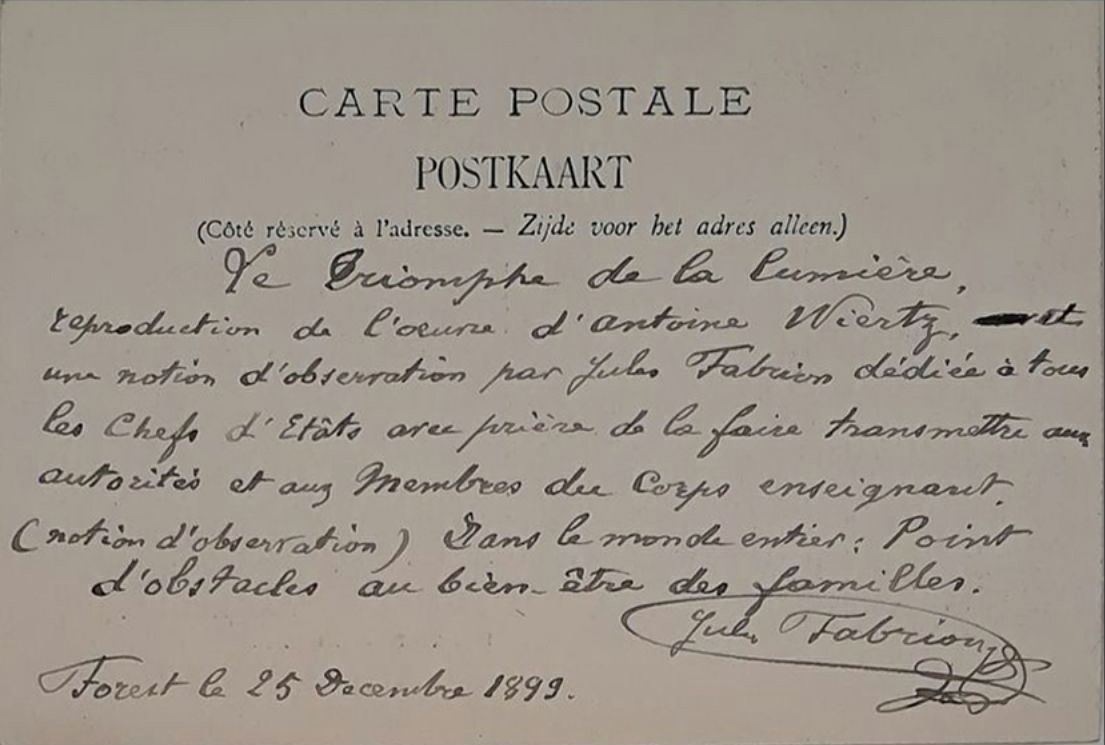 CARTE POSTALE
POSTKAART
(Côté réservé à l'adresse. — Zijde voor het adres alleen.)
Le Triomphe de la Lumière,
reproduction de l'oeuvre d'Antoine Wiertz, et
une notion d'observation par Jules Fabrion dédiée à tous
les Chefs d'Etâts avec prière de la faire transmettre aux
autorités et aux Membres du Corps enseignant.
(notion d'observation) Dans le monde entier: Point
d'obstacles au bien-être des familles.
Jules Fabrion
Forest le 25 Decembre 1899.